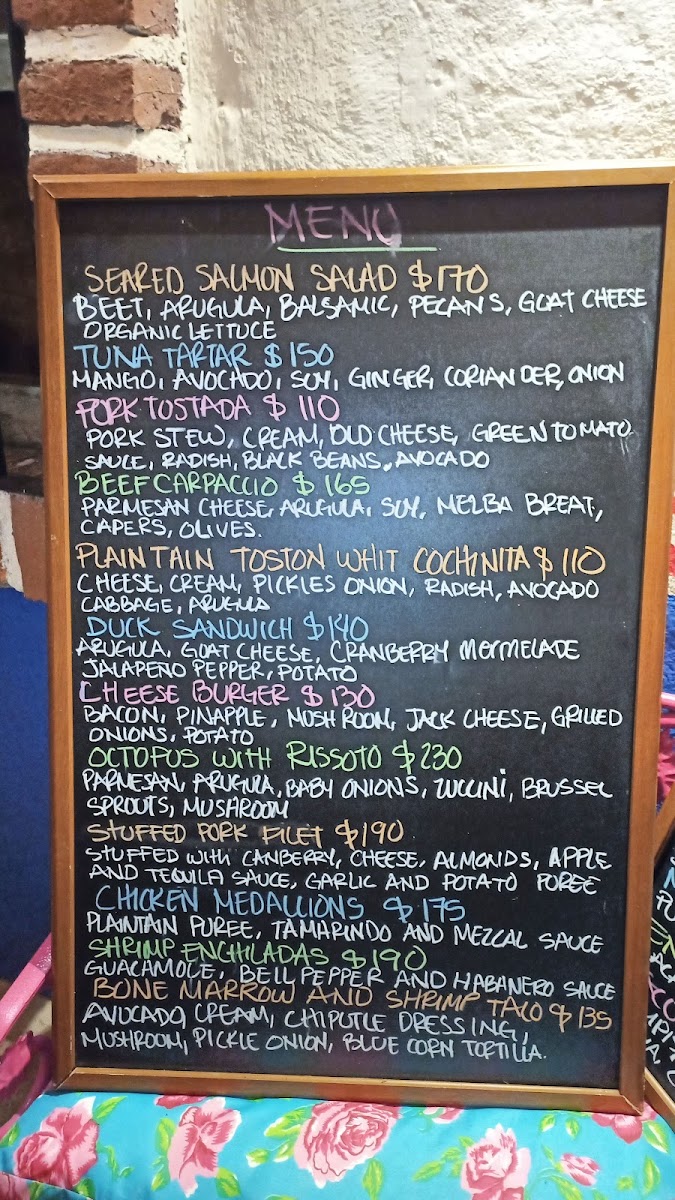 MENU
SEARED SALMON SALAD $170
BEET, ARUGULA, BALSAMIC, PECANS, GOAT CHEESE
ORGANIC LETTUCE
TUNA TARTAR $150
MANGO, AVOCADO, SOY, GINGER, CORIANDER, ONION
PORK TOSTADA $110
PORK STEW, CREAM, OLD CHEESE, GREEN TOMATO
SAUCE, RADISH, BLACK BEANS, AVOCADO
BEEF CARPACCIO $165
PARMESAN CHEESE, ARUGULA, SOY, MELBA BREAT,
CAPERS, OLIVES.
PLAINTAIN TOSTON WHIT COCHINITA $110
CHEESE, CREAM, PICKLES ONION, RADISH, AVOCADO
CABBAGE, ARUGULA
DUCK SANDWICH $140
ARUGULA, GOAT CHEESE, CRANBERRY MORMELADE
JALAPEÑO PEPPER, POTATO
CHEESE BURGER $130
BACON, PINAPPLE, MUSHROOM, JACK CHEESE, GRILLED
ONIONS, POTATO
OCTOPUS WITH RISSOTO $230
PARMESAN, ARUGULA, BABY ONIONS, ZUCCINI, BRUSSEL
SPROUTS, MUSHROOM
STUFFED PORK FILET $190
STUFFED WITH CANBERRY, CHEESE, ALMONDS, APPLE
AND TEQUILA SAUCE, GARLIC AND POTATO POREE
CHICKEN MEDALLIONS $175
PLAINTAIN PUREE, TAMARINDO AND MEZCAL SAUCE
SHRIMP ENCHILADAS $190
GUACAMOLE, BELL PEPPER AND HABANERO SAUCE
BONE MARROW AND SHRIMP TACO $135
AVOCADO, CREAM, CHIPOTLE DRESSING,
MUSHROOM, PICKLE ONION, BLUE CORN TORTILLA.